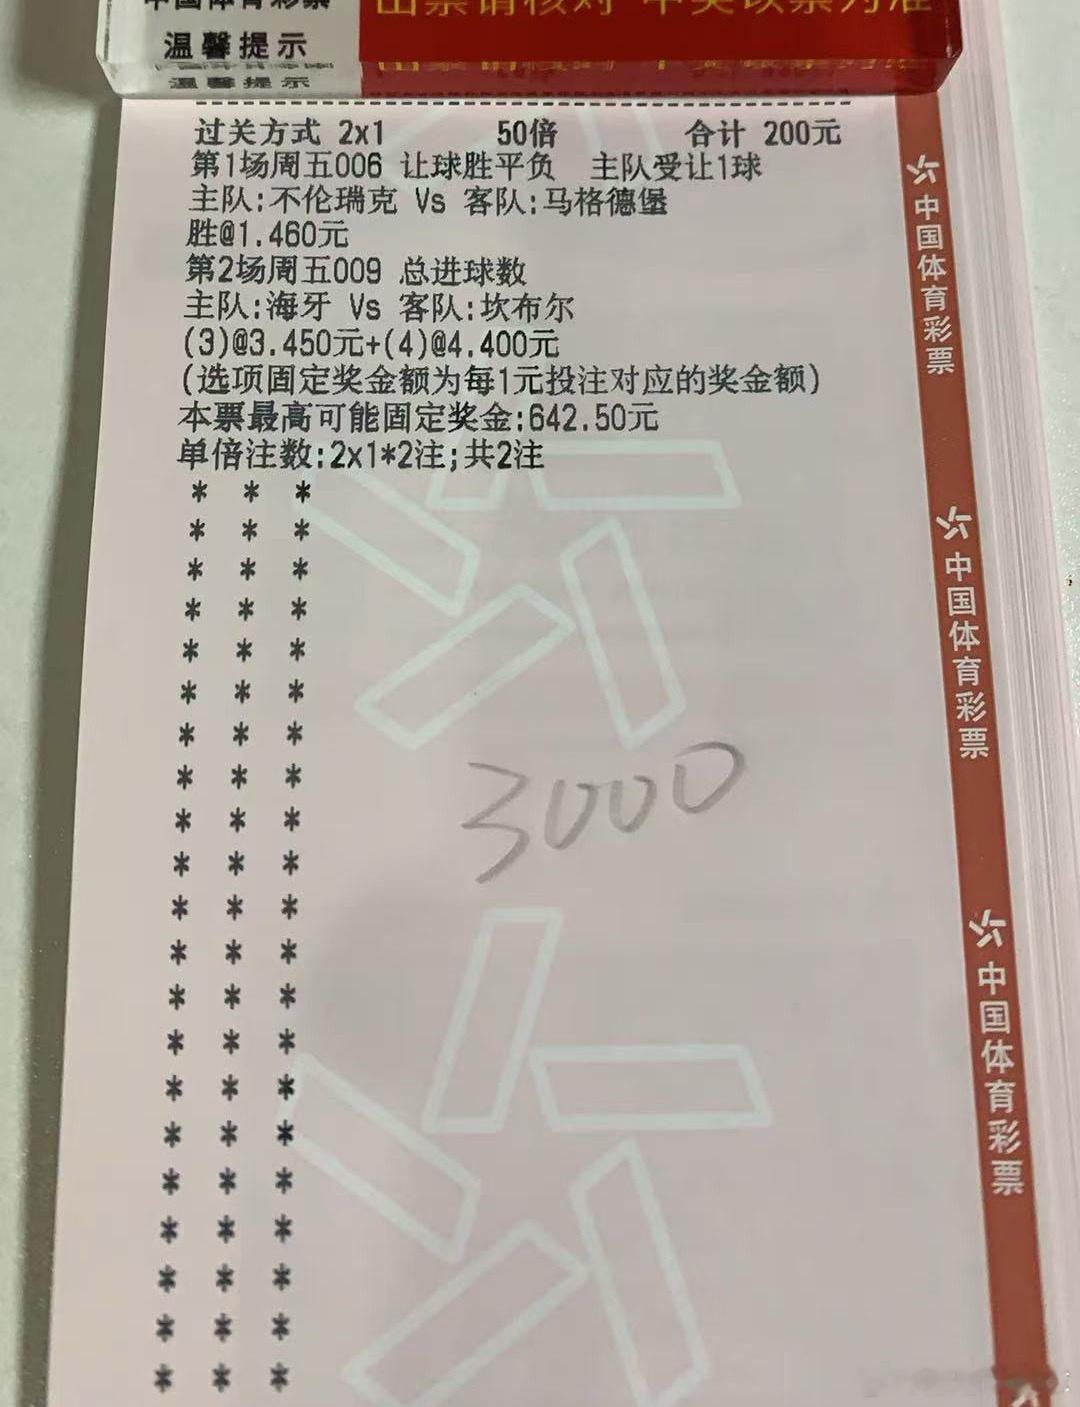 中国体育彩票
温馨提示
出票请核对 中奖以票为准
过关方式 2x1 50倍 合计 200元
第1场周五006 让球胜平负 主队受让1球
主队:不伦瑞克 Vs 客队:马格德堡
胜@1.460元
第2场周五009 总进球数
主队:海牙 Vs 客队:坎布尔
(3)@3.450元+(4)@4.400元
(选项固定奖金额为每1元投注对应的奖金额)
本票最高可能固定奖金:642.50元
单倍注数:2x1*2注;共2注
* * *
* * *
* * *
* * *
* * *
* * *
* * *
* * *
* * *
* * *
* * *
* * *
* * *
* * *
* * *
* * *
* * *
* * *
* * *
* * *
* * *
3000
中国体育彩票
中国体育彩票
中国体育彩票